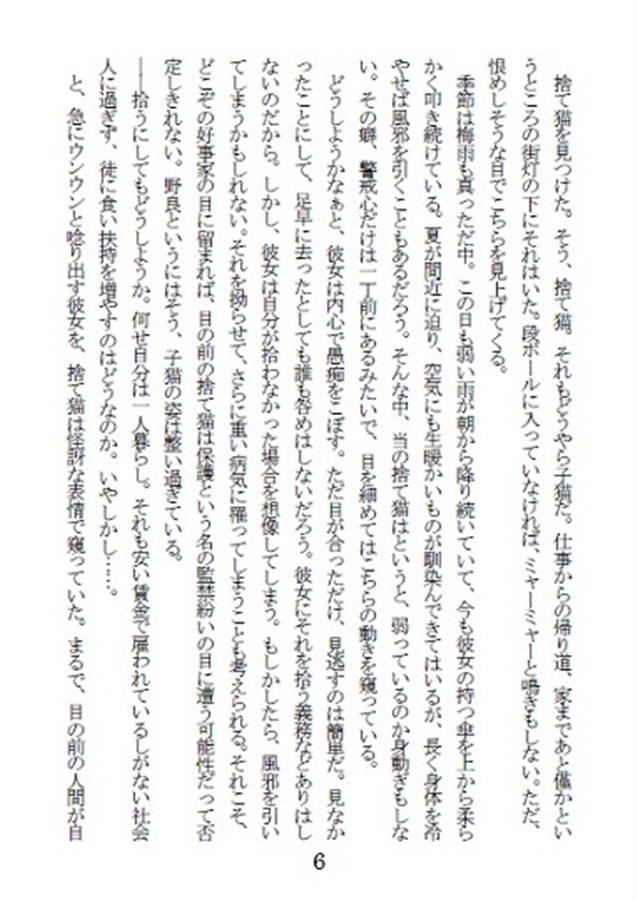 捨て猫を見つけた。そう、捨て猫。それもどうやら子猫だ。仕事からの帰り道、家まであと僅かとい
うところの街灯の下にそれはいた。段ボールに入っていなければ、ミャーミャーと鳴きもしない。ただ、
恨めしそうな目でこちらを見上げてくる。
　季節は梅雨も真っただ中。この日も弱い雨が朝から降り続いていて、今も彼女の持つ傘を上から柔ら
かく叩き続けている。夏が間近に迫り、空気にも生暖かいものが馴染んできてはいるが、長く身体を冷
やせば風邪を引くこともあるだろう。そんな中、当の捨て猫はというと、弱っているのか身動ぎもしな
い。その癖、警戒心だけは一丁前にあるみたいで、目を細めてはこちらの動きを窺っている。
　どうしようかなぁと、彼女は内心で愚痴をこぼす。ただ目が合っただけ、見逃すのは簡単だ。見なか
ったことにして、足早に去ったとしても誰も咎めはしないだろう。彼女にそれを拾う義務などありはし
ないのだから。しかし、彼女は自分が拾わなかった場合を想像してしまう。もしかしたら、風邪を引い
てしまうかもしれない。それを拗らせて、さらに重い病気に罹ってしまうことも考えられる。それこそ、
どこぞの好事家の目に留まれば、目の前の捨て猫は保護という名の監禁紛いの目に遭う可能性だって否
定しきれない。野良というにはそう、子猫の姿は整い過ぎている。
――拾うにしてもどうしようか。何せ自分は一人暮らし。それも安い賃金で雇われているしがない社会
人に過ぎず、徒に食い扶持を増やすのはどうなのか。いやしかし……。
　と、急にウンウンと唸り出す彼女を、捨て猫は怪訝な表情で窺っていた。まるで、目の前の人間が自
6